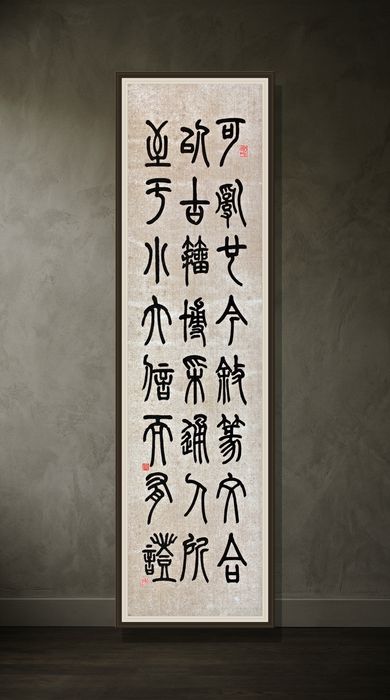 可亂也今敘篆文合
以古籀博采通人所
至于小大信而有證